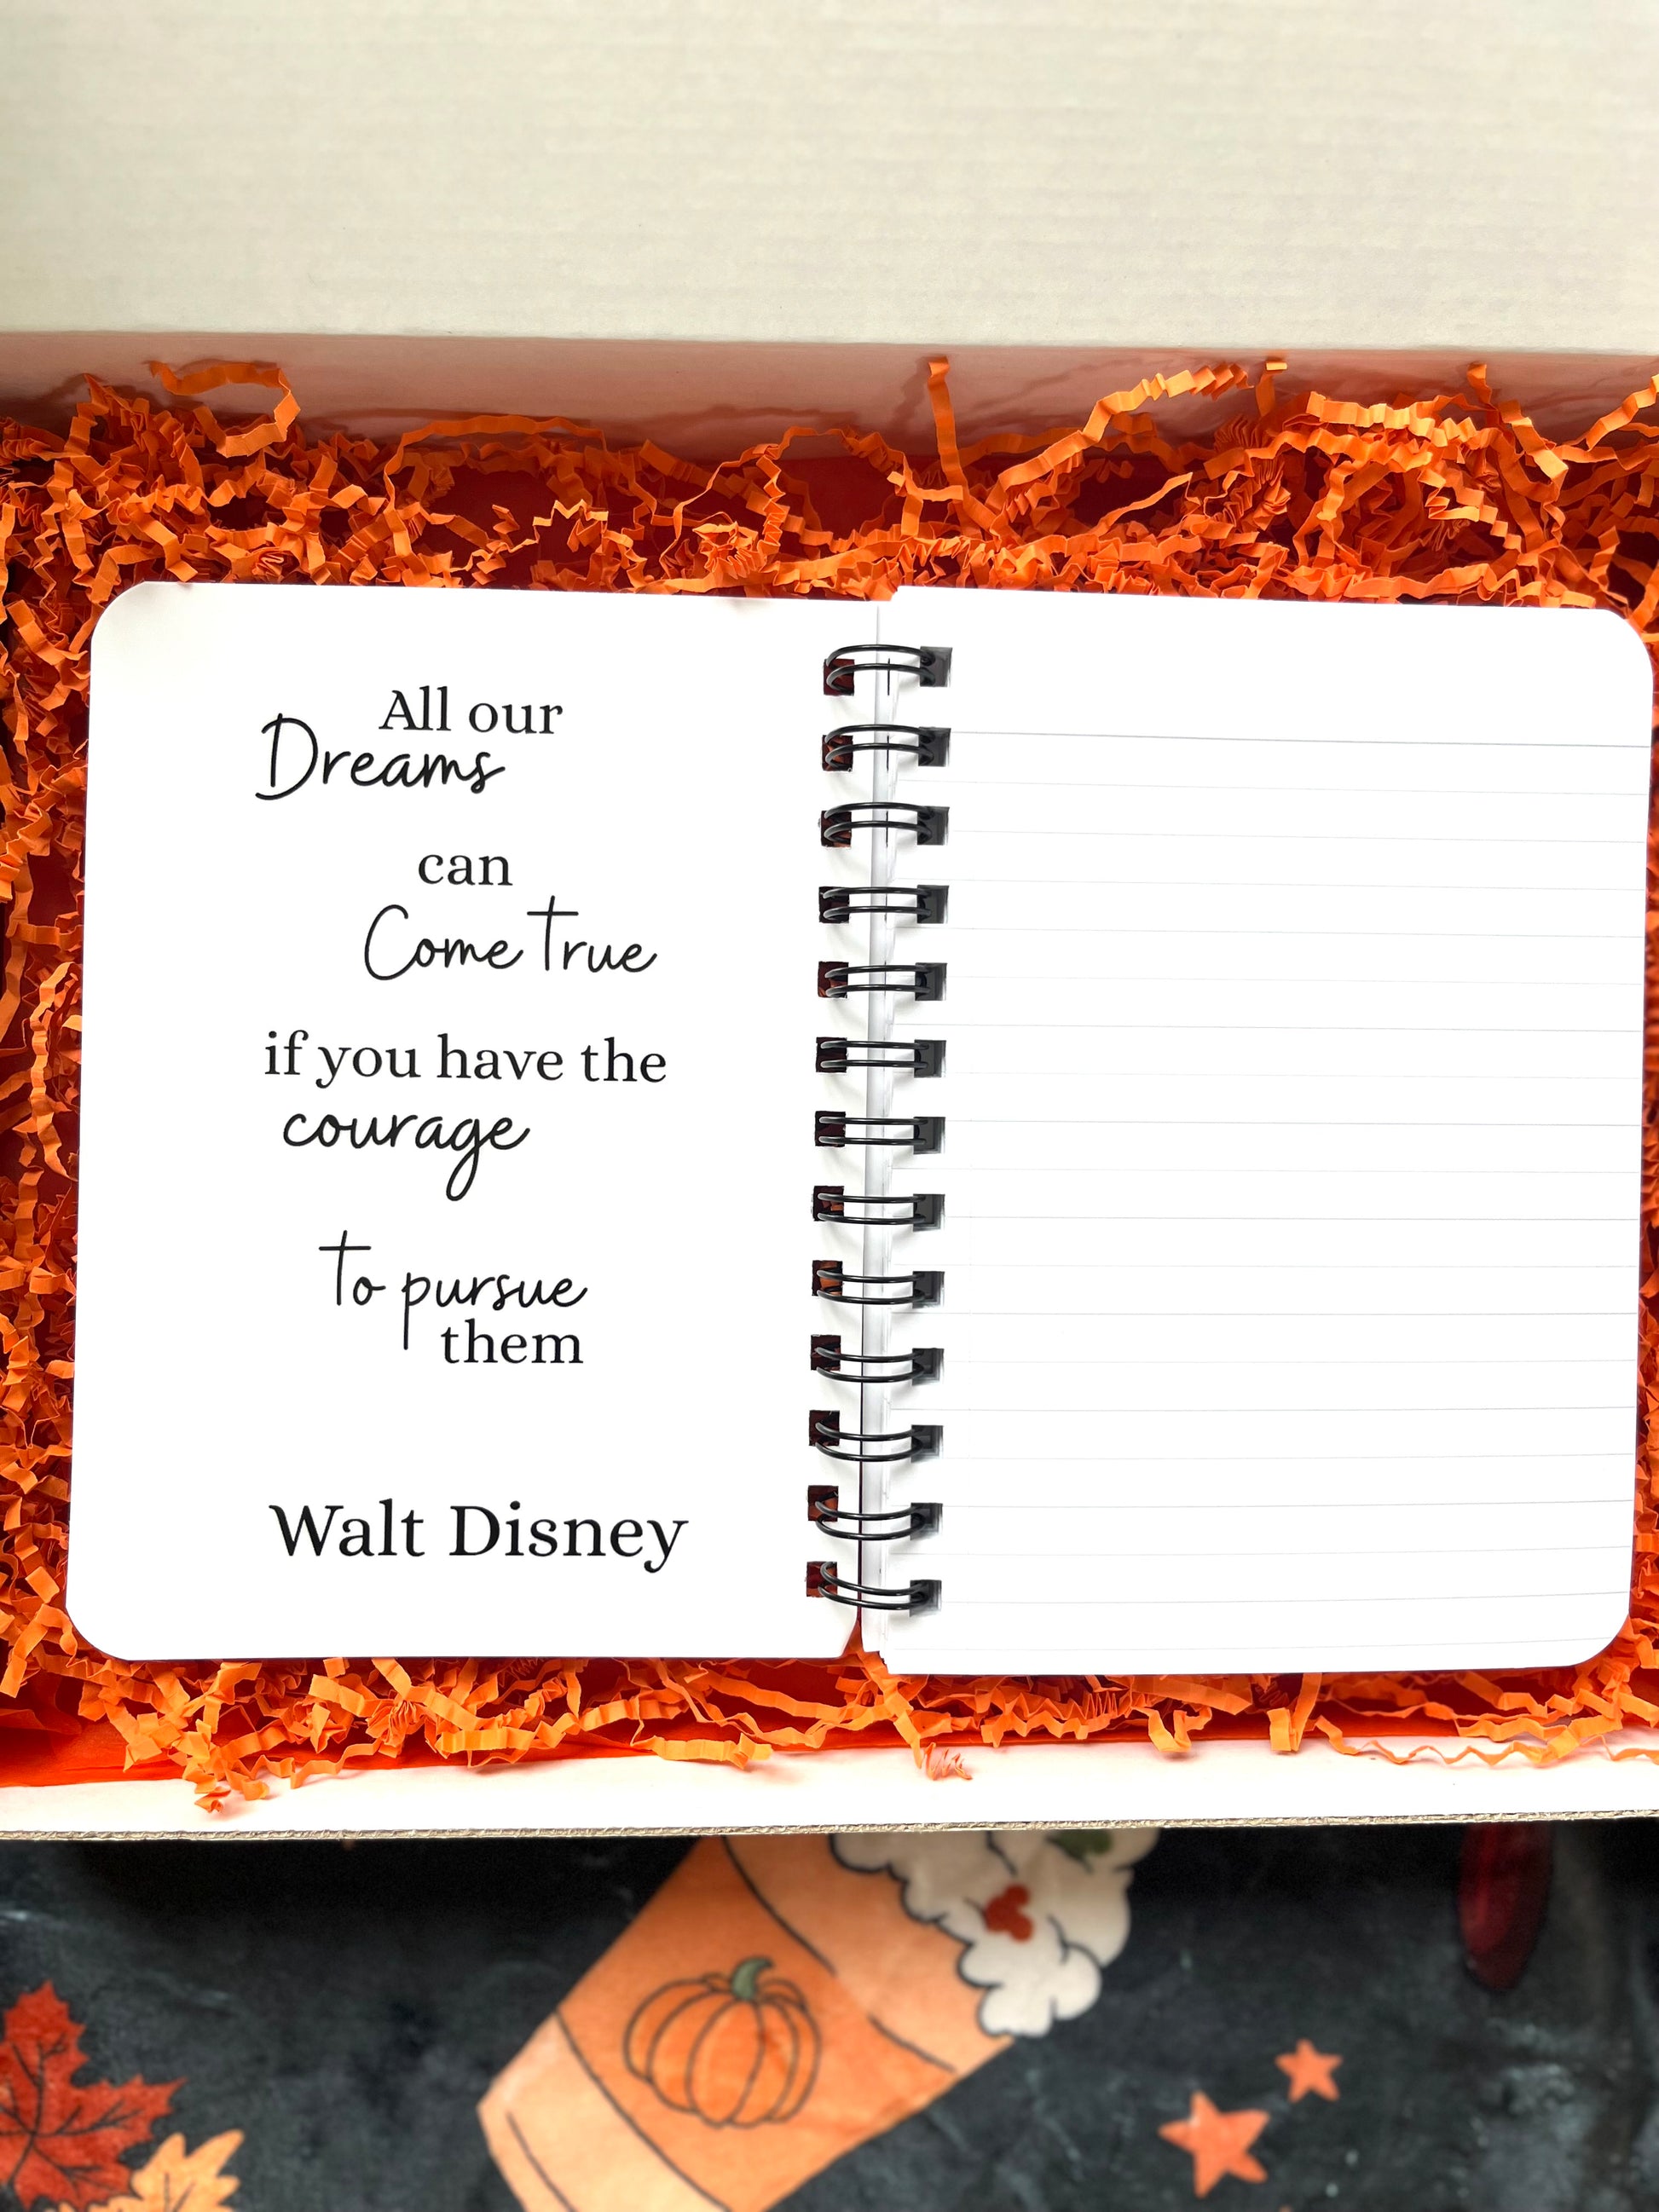 All our
Dreams
can
Come True
if you have the
courage
To pursue
them
Walt Disney